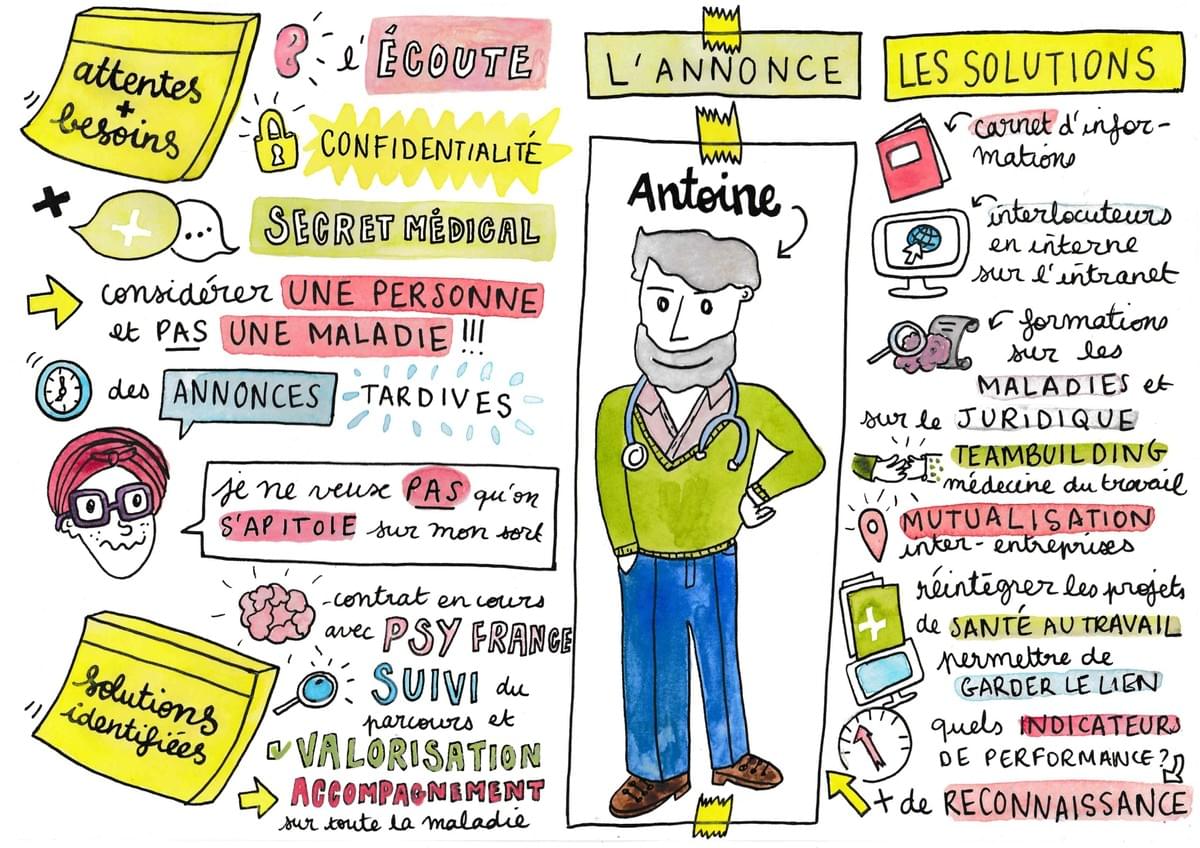 attentes
+
besoins
l'ÉCOUTE
CONFIDENTIALITÉ
SECRET MÉDICAL
considérer UNE PERSONNE
et PAS UNE MALADIE !!!
des ANNONCES TARDIVES
je ne veux PAS qu'on
S'APITOIE sur mon sort
solutions
identifiées
-contrat en cours
avec PSY FRANCE
SUIVI du
parcours et
VALORISATION
ACCOMPAGNEMENT
sur toute la maladie
L'ANNONCE
Antoine
LES SOLUTIONS
carnet d'infor-
mations
interlocuteurs
en interne
sur l'intranet
formations
sur les
MALADIES et
sur le JURIDIQUE
TEAMBUILDING
médecine du travail
MUTUALISATION
inter-entreprises
réintégrer les projets
de SANTÉ AU TRAVAIL
permettre de
GARDER LE LIEN
quels INDICATEURS
DE PERFORMANCE?
+ de RECONNAISSANCE